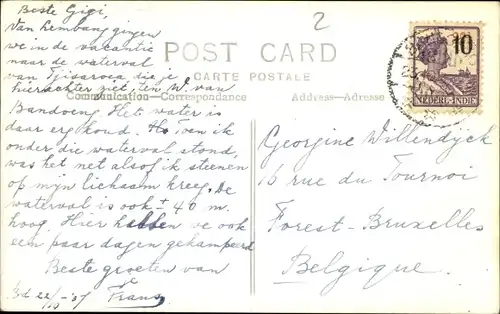 2
Beste Gigi,
Van Lembang gingen
we in de vacantie
naar de waterval
van Tjisaroea die je
hierachter ziet, ten W. van
Bandoeng. Het water is
daar erg koud. Ho, toen ik
onder die waterval stond,
was het net alsof ik steenen
op mijn lichaam kreeg. De
waterval is ook ± 40 m.
hoog. Hier hebben we ook
een paar dagen gekampeerd
Beste groeten van
Bd 22/10-'37 Frans
POST CARD
CARTE POSTALE
Communication—Correspondance
Address—Adresse
10
NEDERL-INDIE
Georgine Willendyck
16 rue du Tournoi
Forest-Bruxelles
Belgique.